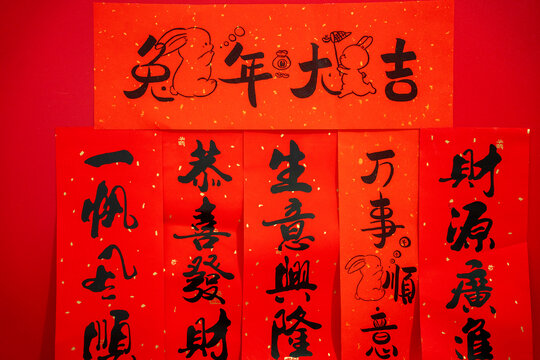 兔年大吉
一帆风順
恭喜發財
生意興隆
万事順意
財源廣進